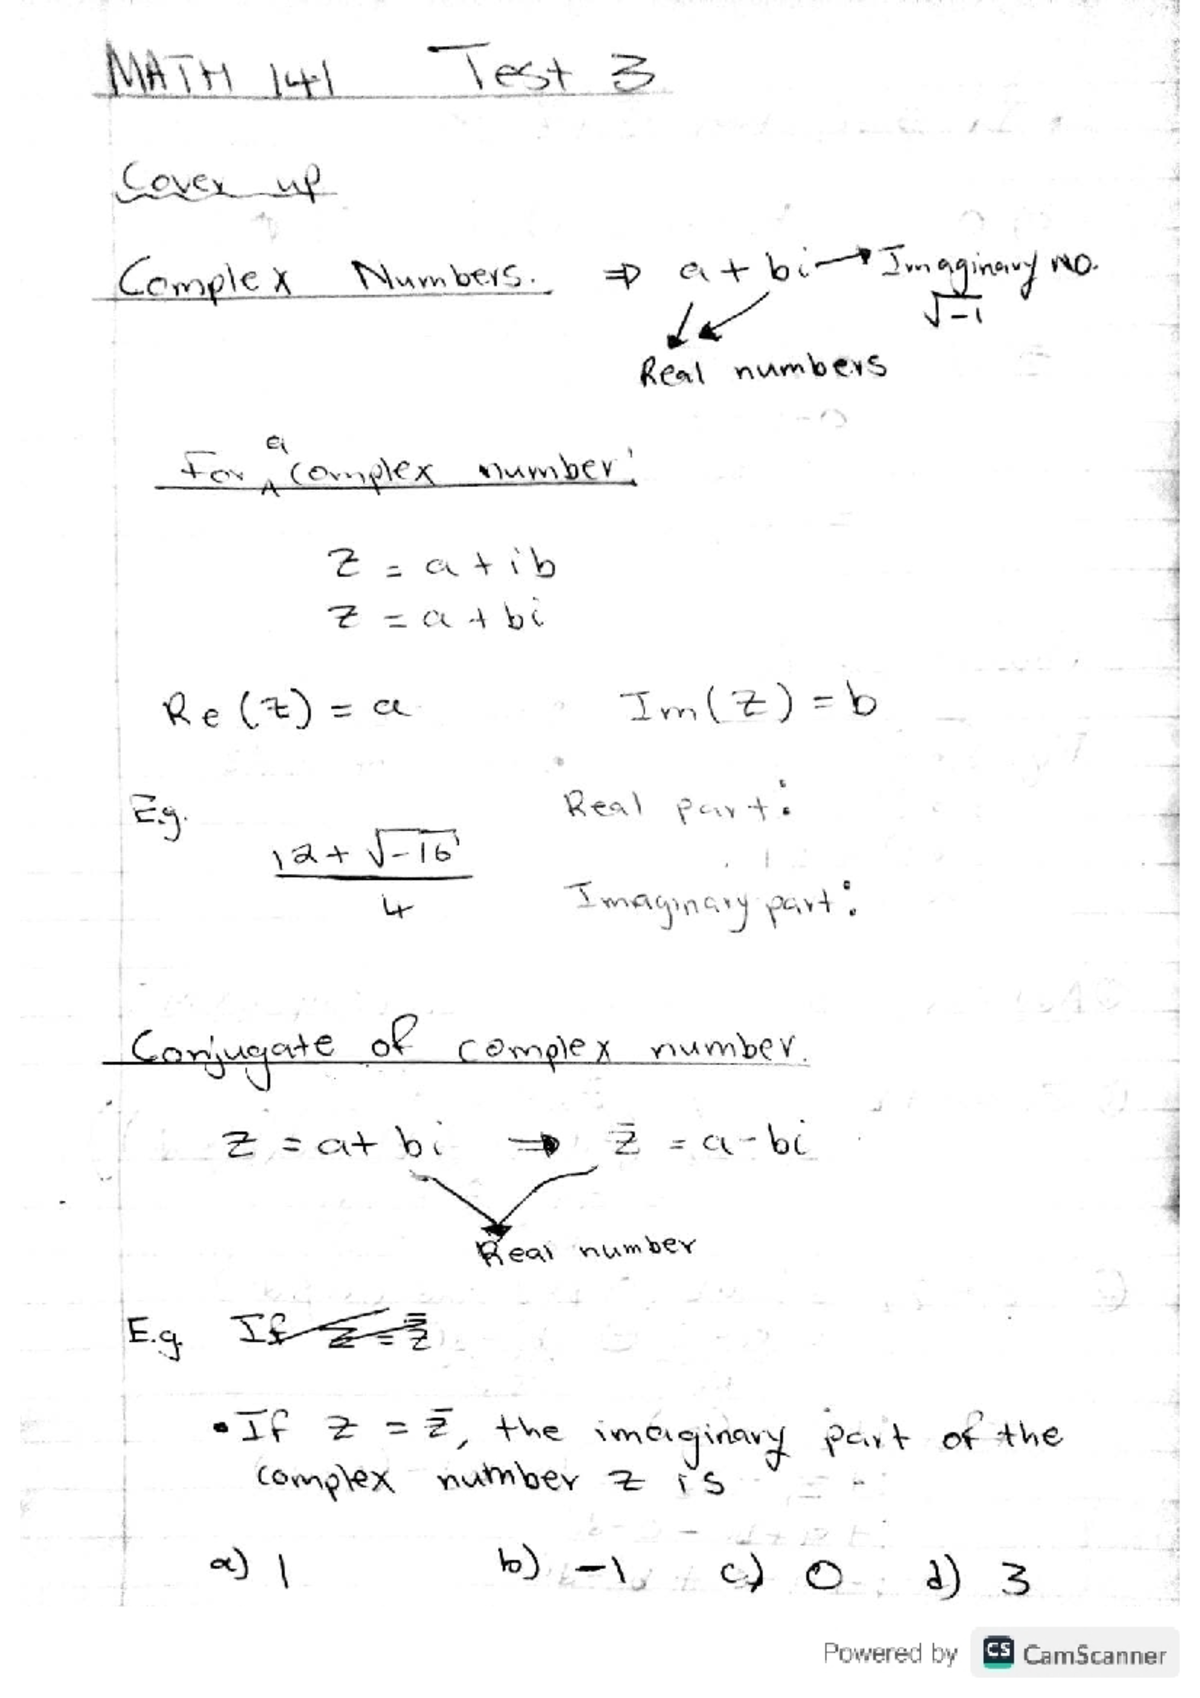 MATH 141 Test 3
Cover up
Complex Numbers. ⇒ a + bi → Imaginary no.
√-1
Real numbers
For a complex number:
z = a + ib
z = a + bi
Re(z) = a Im(z) = b
E.g. Real part:
12 + √-16
4
Imaginary part:
Conjugate of complex number.
z = a + bi ⇒ z̄ = a - bi
Real number
E.g. If z = z̄
• If z = z̄, the imaginary part of the
complex number z is
a) 1 b) -1 c) 0 d) 3
Powered by CS CamScanner